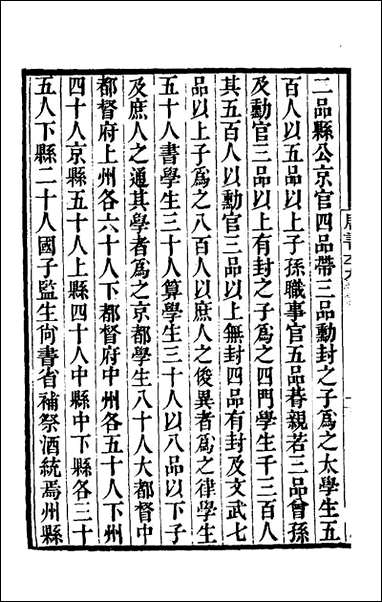 二品縣公京官四品帶三品勳封之子爲之太學生五
百人以五品以上子孫職事官五品朞親若三品曾孫
及勳官三品以上有封之子爲之四門學生千三百人
其五百人以勳官三品以上無封四品有封及文武七
品以上子爲之八百人以庶人之俊異者爲之律學生
五十人書學生三十人算學生三十人以八品以下子
及庶人之通其學者爲之京都學生八十人大都督中
都督府上州各六十人下都督府中州各五十人下州
四十人京縣五十人上縣四十人中縣中下縣各三十
五人下縣二十人國子監生尙書省補祭酒統焉州縣